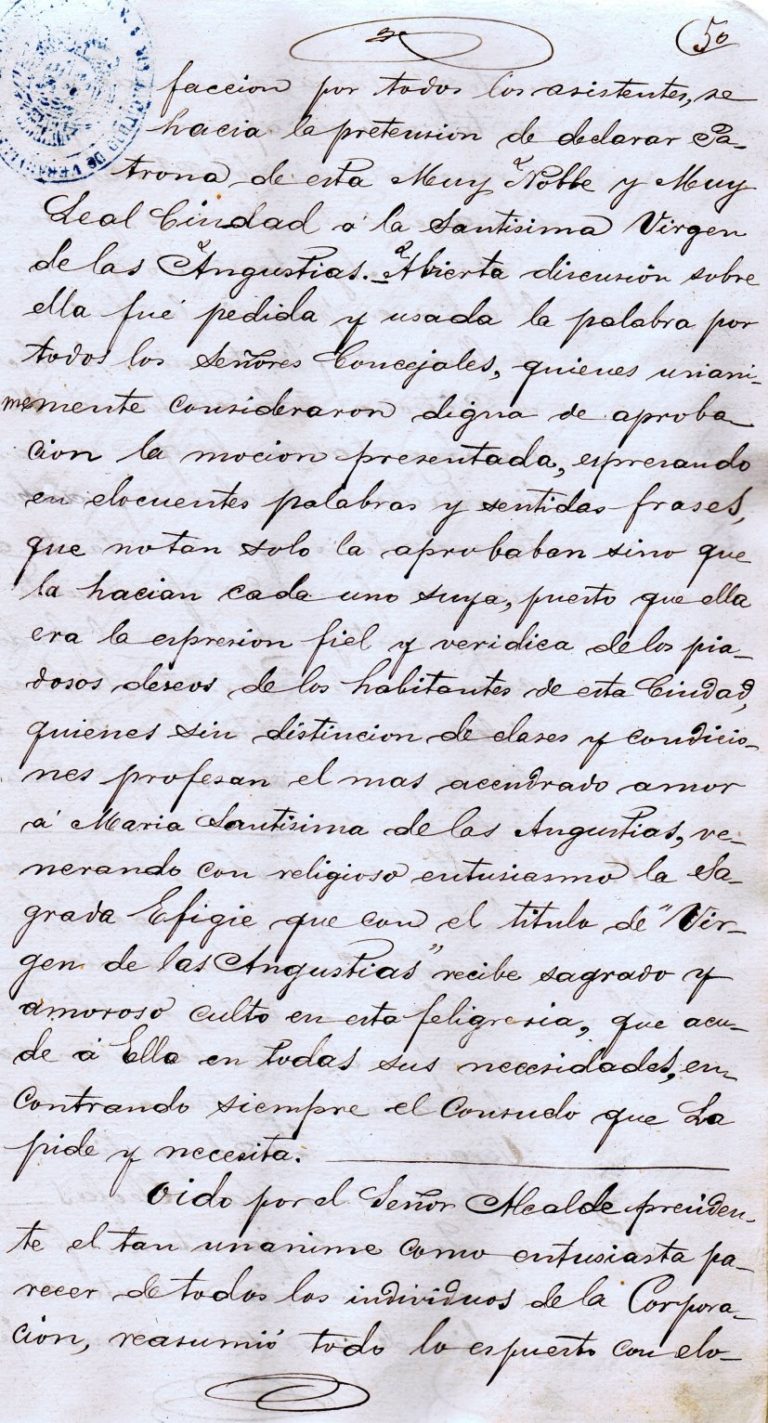 50
faccion por todos los asistentes, se
hacia la pretension de declarar Pa-
trona de esta Muy Noble y Muy
Leal Ciudad á la Santisima Virgen
de las Angustias._Abierta discusión sobre
ella fué pedida y usada la palabra por
todos los Señores Concejales, quienes unani-
memente consideraron digna de aproba
cion la mocion presentada, espresando
en elocuentes palabras y sentidas frases,
que no tan solo la aprobaban sino que
la hacian cada uno suya, puesto que ella
era la espresion fiel y veridica de los pia-
dosos deseos de los habitantes de esta Ciudad,
quienes sin distincion de clases y condicio-
nes profesan el mas acendrado amor
á Maria Santisima de las Angustias, ve-
nerando con religioso entusiasmo la Sa-
grada Efigie que con el titulo de "Vir-
gen de las Angustias" recibe sagrado y
amoroso culto en esta feligresia, que acu-
de á Ella en todas sus necesidades, en-
contrando siempre el consuelo que La
pide y necesita.
Oido por el Señor Alcalde presiden-
te el tan unanime como entusiasta pa-
recer de todos los individuos de la Corpora-
ción, reasumió todo lo espuesto con elo-